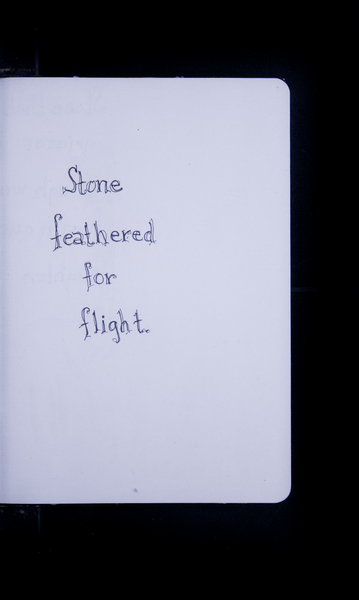 Stone
feathered
for
flight.